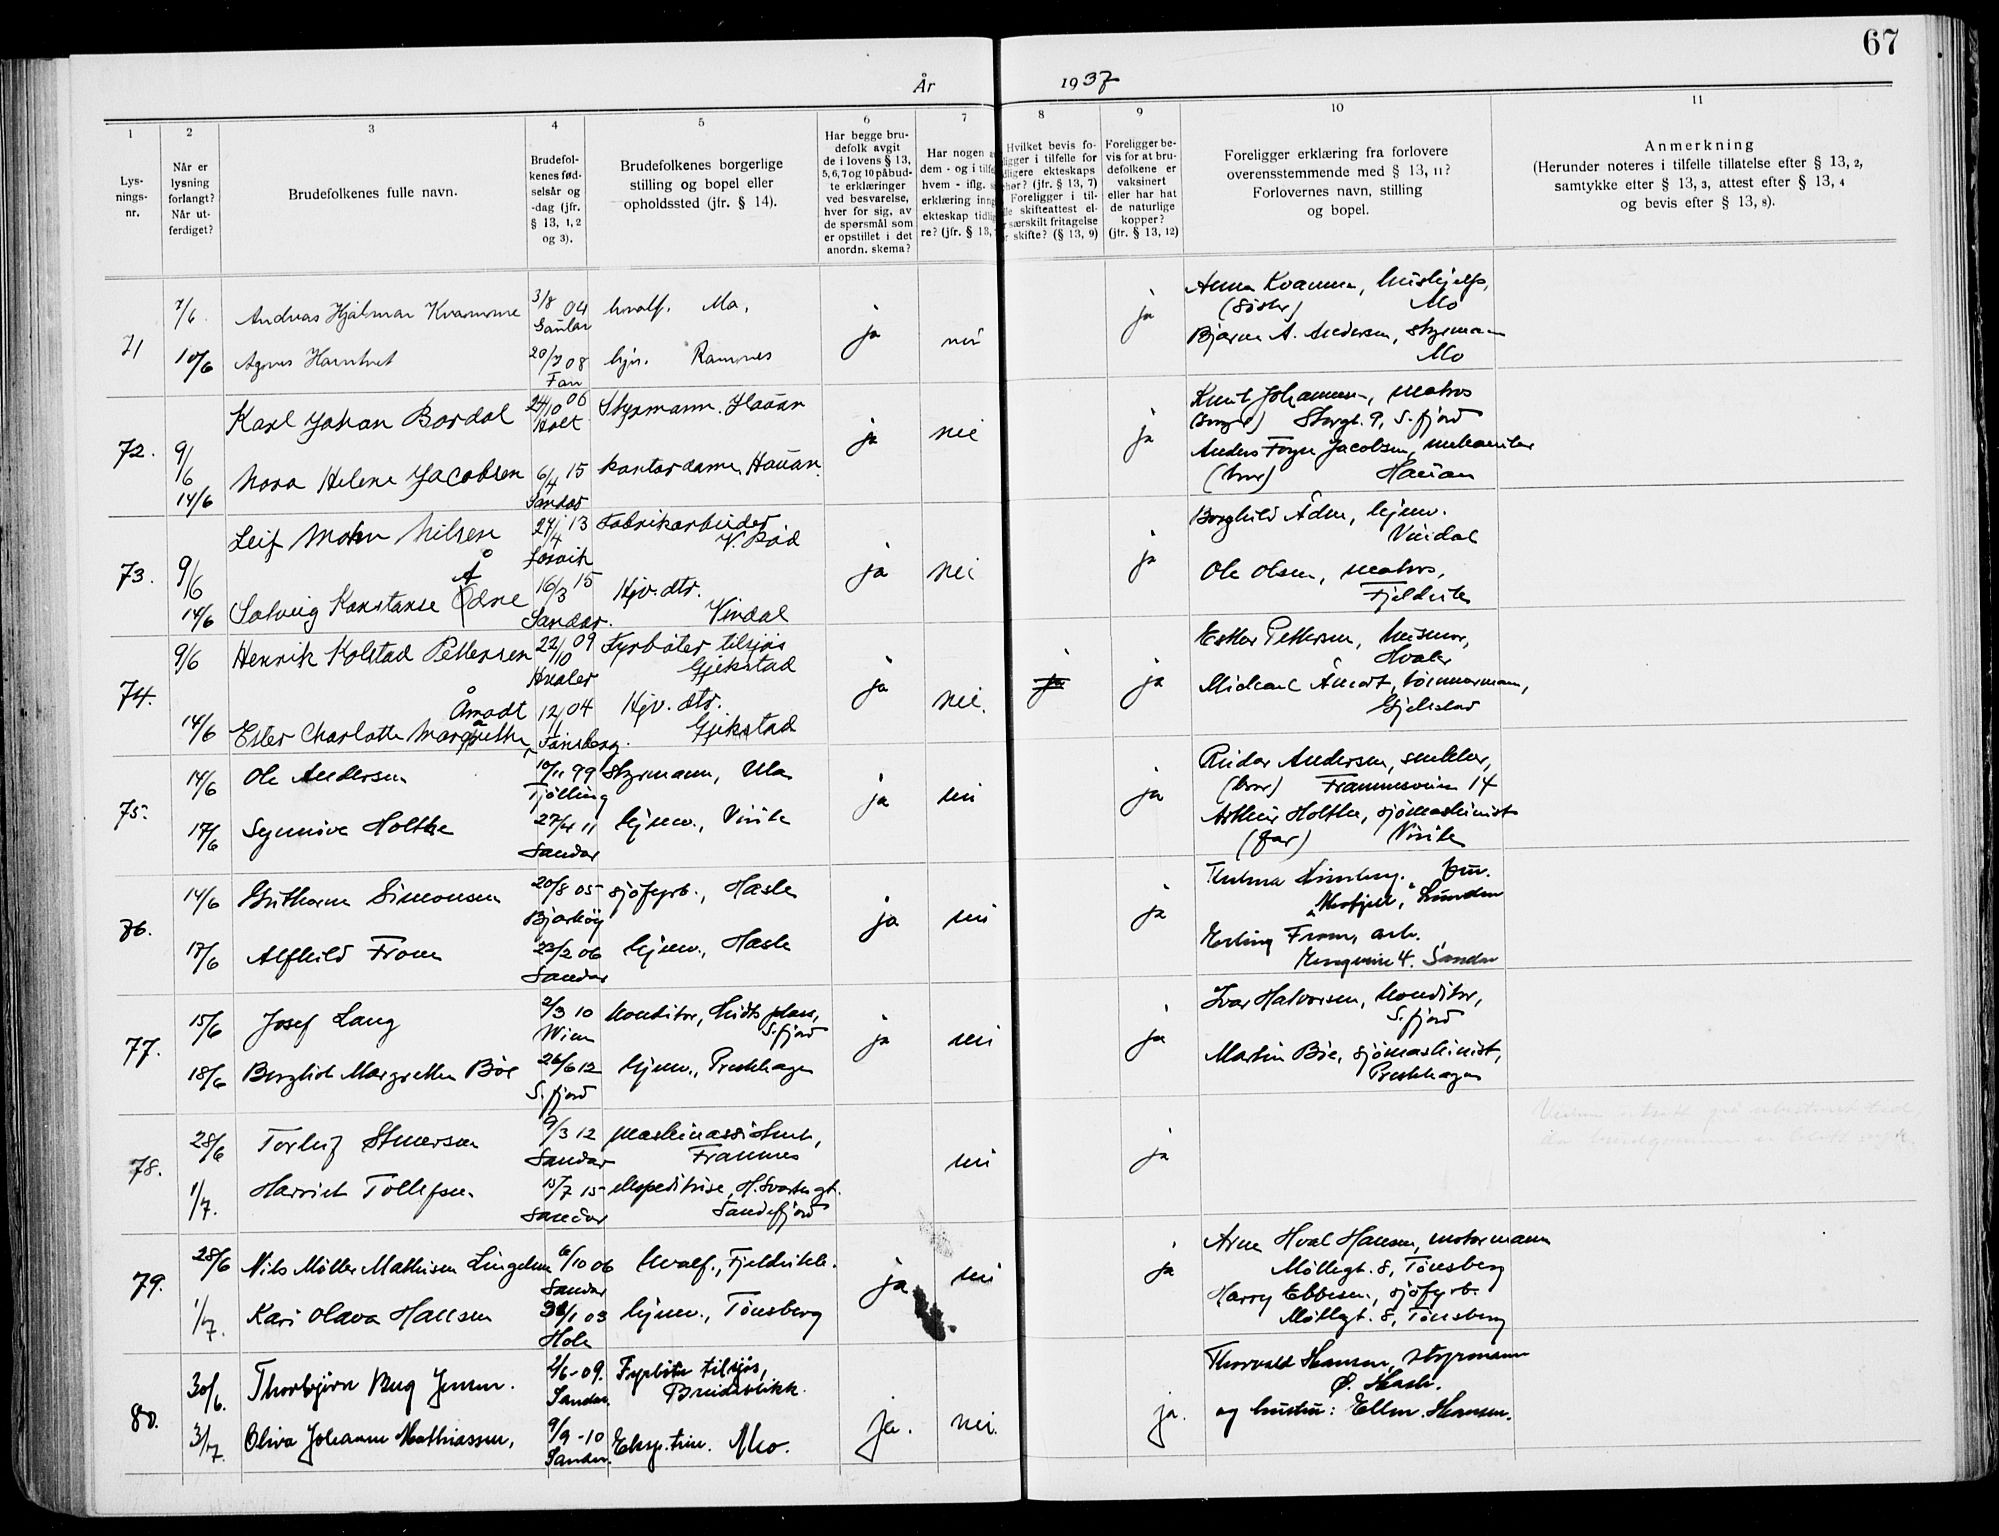 67
År 1937
1 2 3 4 5 6 7 8 9 10 11
Lys-
nings-
nr.
Når er
lysning
forlangt?
Når ut-
ferdiget?
Brudefolkenes fulle navn.
Brudefol-
kenes fød-
selsår og
-dag (jfr.
§ 13, 1, 2
og 3).
Brudefolkenes borgerlige
stilling og bopel eller
opholdssted (jfr. § 14).
Har begge bru-
defolk avgit
de i lovens § 13,
5, 6, 7 og 10 påbud-
te erklæringer
ved besvarelse,
hver for sig, av
de spørsmål som
er opstillet i det
anordn. skema?
Har nogen
dem - og i
hvem - iflg.
erklæring
ekteskap
re? (jfr. § 13,
Hvilket bevis fo-
i tilfelle for
ekteskaps
(jfr. § 13, 7)
Foreligger i til-
skifteattest el-
særskilt fritagelse
skifte? (§ 13, 9)
Foreligger be-
vis for at bru-
defolkene er
vaksinert
eller har hat
de naturlige
kopper?
(jfr. § 13, 12)
Foreligger erklæring fra forlovere
overensstemmende med § 13, 11?
Forlovernes navn, stilling
og bopel.
Anmerkning
(Herunder noteres i tilfelle tillatelse efter § 13, 2,
samtykke efter § 13, 3, attest efter § 13, 4
og bevis efter § 13, 8).
71
7/6 Andreas Hjalmar Kvamme 3/8 04 hvalf. Mo.
Gaular
10/6 Agnes 20/7 08 hjv. Ramnes
ja nei ja
Anna Kvamme, hushjelp,
(søster) Mo
Bjarne A. Andersen, styrmann
Mo
72.
9/6 Karl Johan Bordal 24/10 06 Styrmann. Hauan
Holt
14/6 Nora Helene Jacobsen 6/4 15 kontordame, Hauan.
Sandar
ja nei ja
Knut Johannesen, matros
Storgt. 9, S.fjord
Anders Foyn Jacobsen, mekaniker
(bror) Hauan
73.
9/6 Leif Mohn Nilsen 27/4 13 Fabrikarbeider
V. Rød
14/6 Solveig Konstanse Ådne 16/3 15 Hjv. dtr.
Sandar. Vindal
ja nei ja
Borghild Ådne, hjemv.
Vindal
Ole Olsen, matros,
Fjeldvik
74.
9/6 Henrik Kolstad Pettersen 22/10 09 Fyrbøter tilsjøs
Hvaler Gjekstad
Åmodt
14/6 Ester Charlotte Margrethe 12/11 04 Hjv. dtr.
Tønsberg. Gjekstad
ja nei. ja ja
Esther Pettersen, husmor,
Hvaler
Michael Åmodt, tømmermann,
Gjekstad
75.
14/6 Ole Andersen 10/11 99 styrmann, Ula
Tjølling
17/6 Synnøve Holthe 27/4 11 hjemv., Virik
Sandar
ja nei ja
Reidar Andersen, snekker,
(bror) Framnesveien 14
Arthur Holthe, sjømaskinist
(far) Virik
76.
14/6 Guthorm Simonsen 20/8 05 sjøfyrb., Hasle
Bjarkøy
17/6 Alfhild From 23/2 06 hjemv., Hasle
Sandar
ja nei ja
Thelma fru.
Lunden
Erling From, arb.
4. Sandar
77.
15/6 Josef Lang 2/3 10 konditor, Hvidts plass,
Wien S.fjord
18/6 Borghild Margrethe Bøe 26/6 12 hjemv., Preståsen
S.fjord
ja nei ja
Ivar Halvorsen, konditor,
S.fjord
Martin Bøe, sjømaskinist,
78.
28/6 Torleif 9/3 12 maskinassistent,
Sandar Framnes
1/7. Harriet Tollefsen 15/7 15 ekspeditrise,
Sandar Sandefjord
nei ja
79.
28/6 Nils Møller Mathisen Lingelem 6/10 06 hvalf., Fjeldvik.
Sandar
1/7. Kari Olava Hansen 31/1 03 hjemv., Tønsberg
Hole
ja nei ja
Arne Hval Hansen, motormann
Møllegt. 8, Tønsberg
Harry Ebbesen, sjøfyrb.
Møllegt. 8, Tønsberg
80.
30/6. Thorbjørn Bug Jensen. 2/6-09. Fyrbøter tilsjøs,
Sandar. Breidablikk.
3/7. Oliva Johanne Mathiassen, 9/9-10 Eksp.trise. Mo.
Sandar.
ja. nei. ja.
Thorvald Hansen, styrmann
Ø. Hasle.
og hustru: Ellen Hansen.